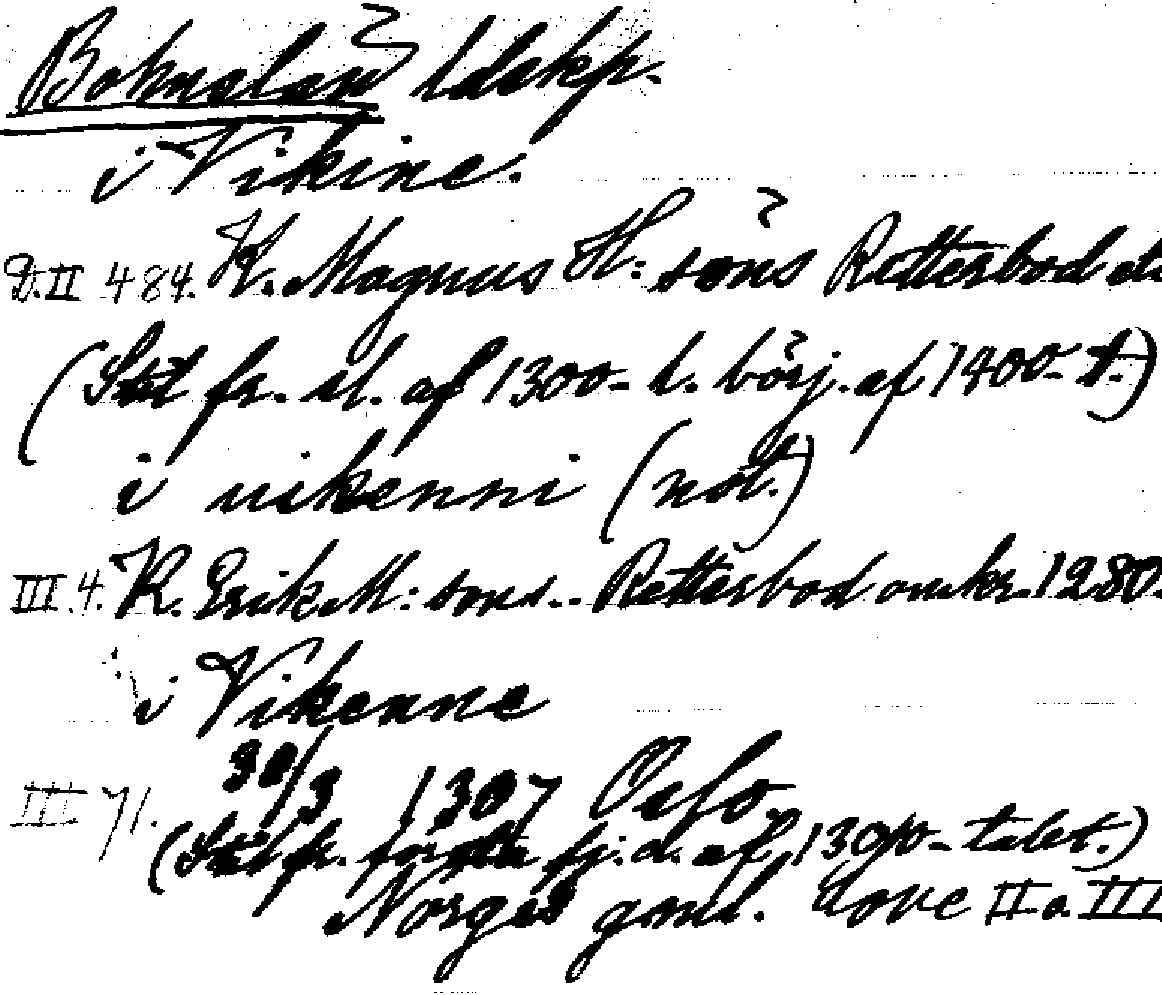 Bohuslän ldskp.
i Vikine.
D. II 484. K. Magnus H:söns Retterbod etc
(Skt fr. sl. af 1300-t. börj. af 1400-t.)
i uikenni (not.)
III. 4. K. Erik M:sons.. Retterbod omkr. 1280.
i Vikenne
III 71. 30/3 1307 Oslo
(Skt fr. första fj.d. af 1300-talet.)
Norges gaml. Love II o. III